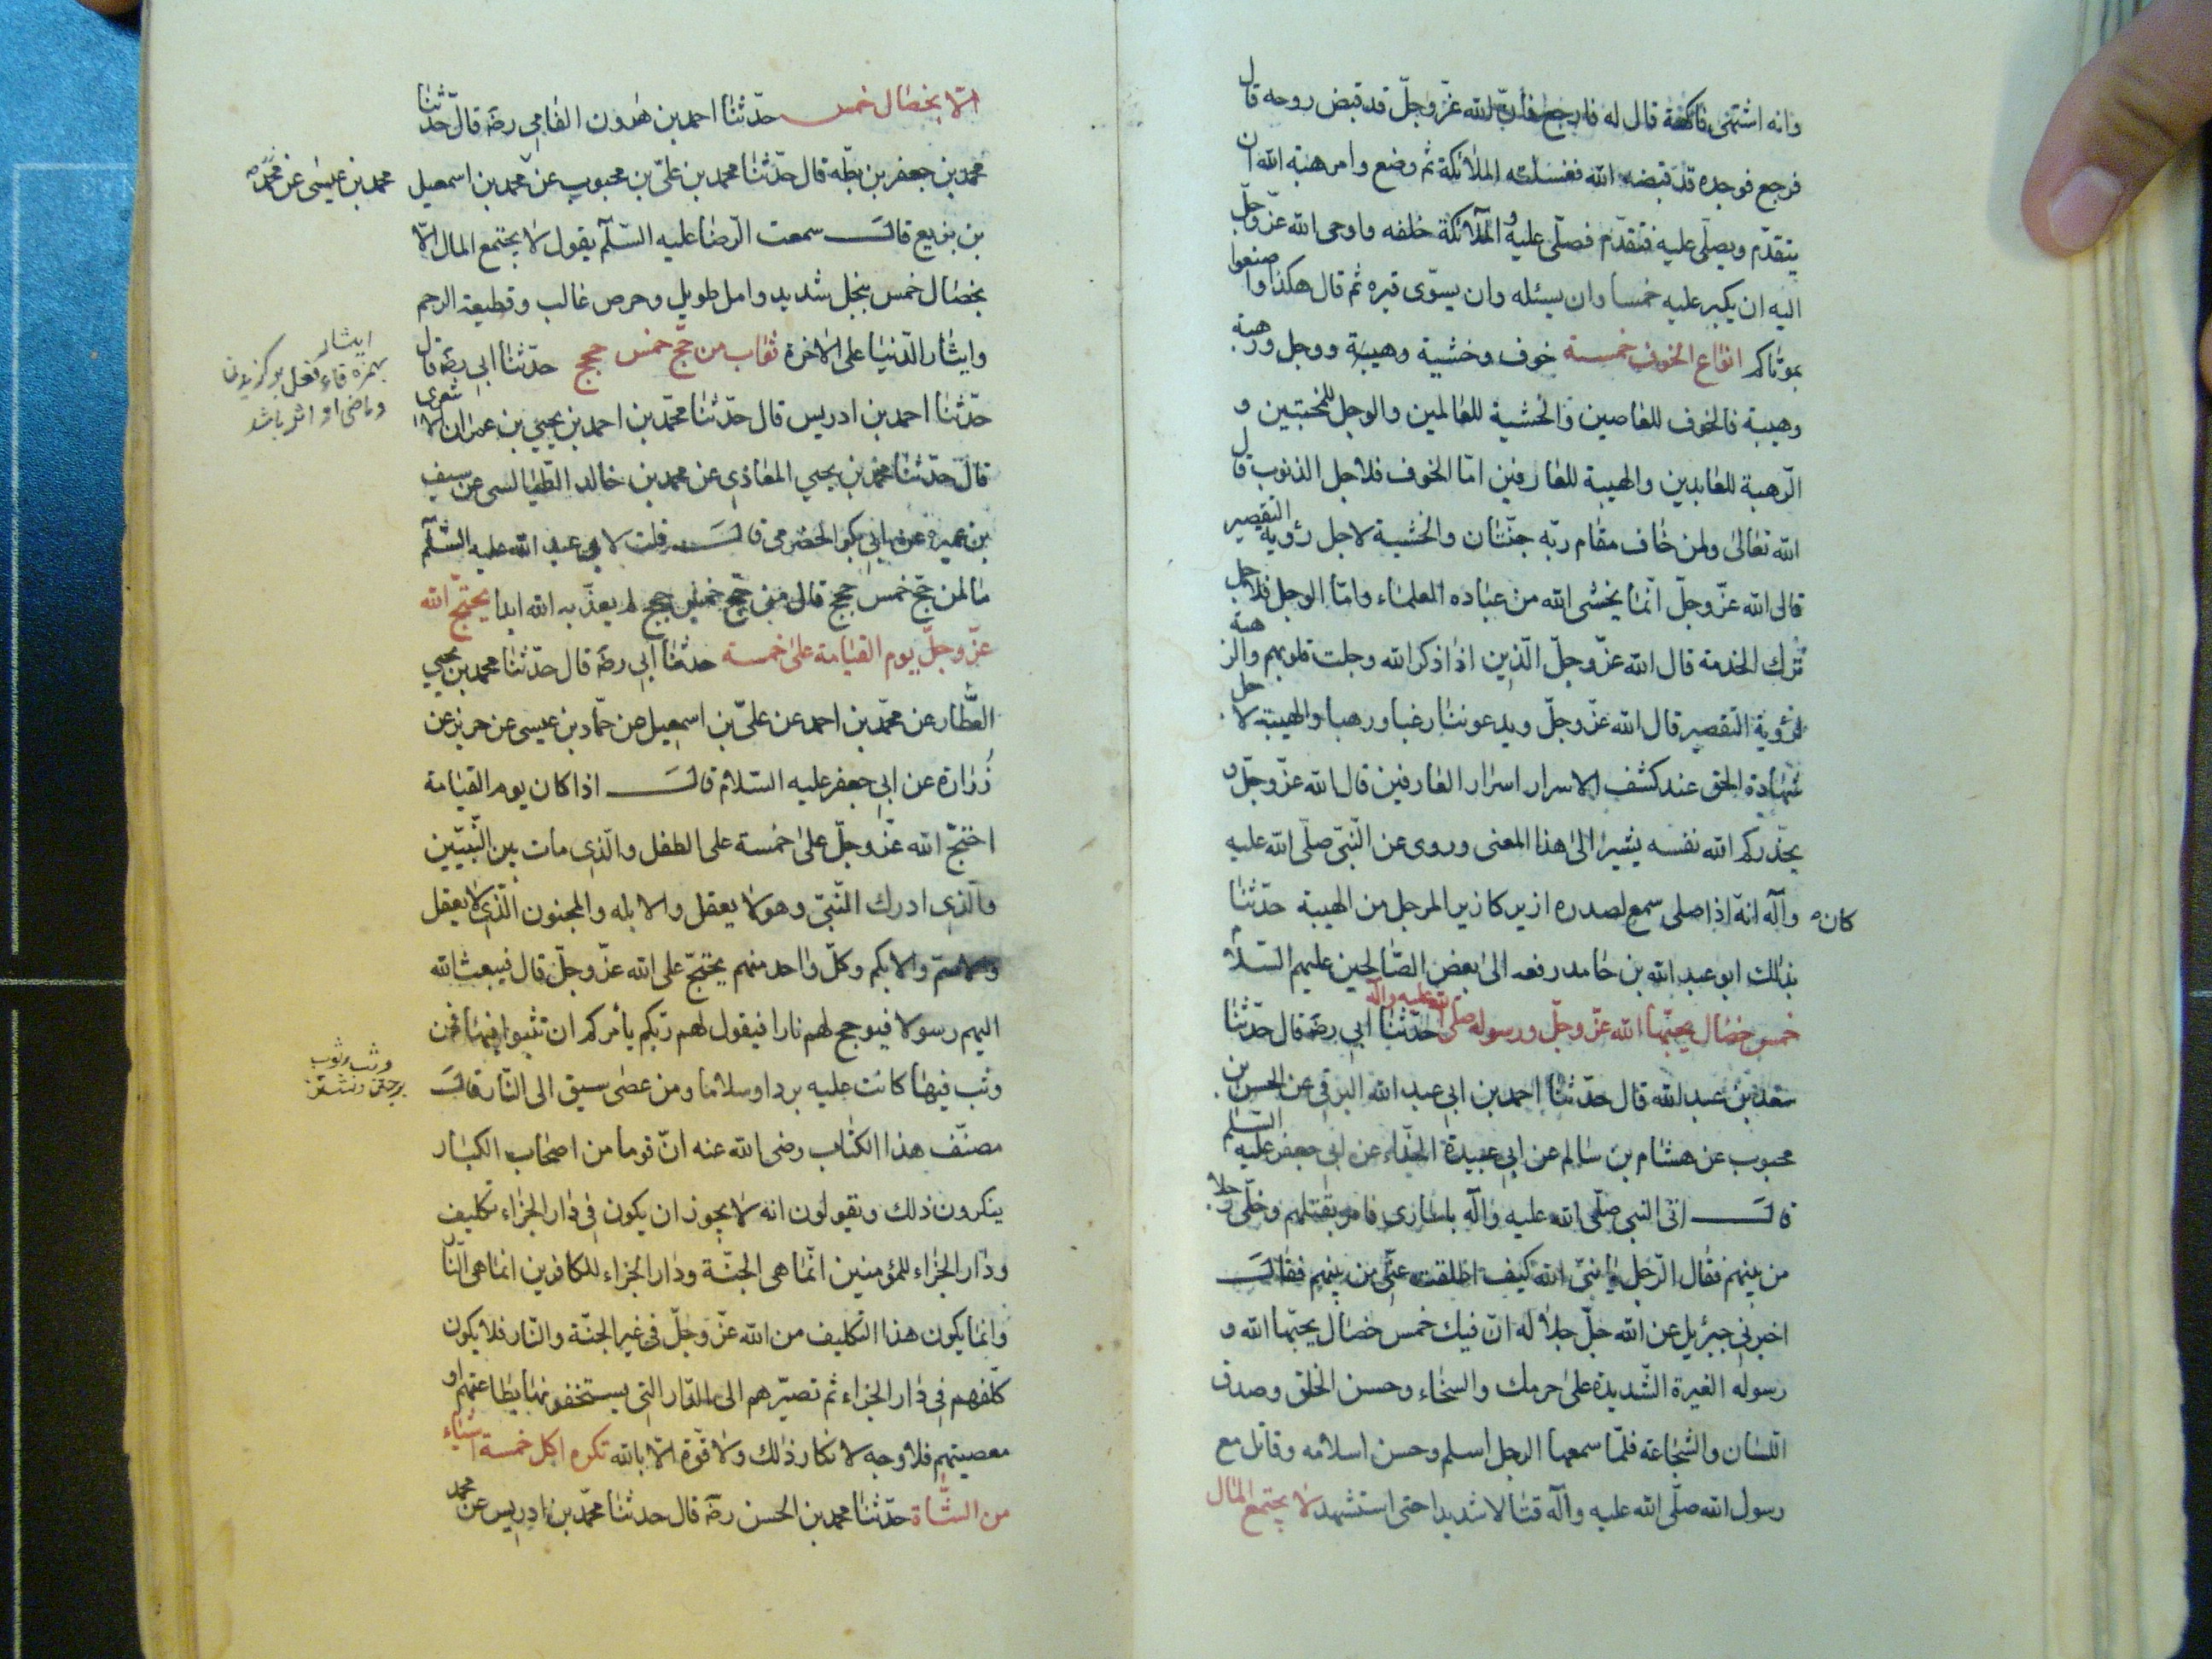 وانه اشتهى فاكهة قال له فارجع فان الله عزّ وجلّ قد قبض روحه قال
فرجع فوجده قد قبضه الله فغسلته الملائكة ثم وضع وامر هبة الله ان
يتقدّم ويصلّى عليه فتقدّم فصلّى عليه والملائكة خلفه واوحى الله عزّ وجلّ
اليه ان يكبر عليه خمسا وان يسئله وان يسوّى قبره ثم قال هكذا فاصنعوا
بموتاكم انواع الخوف خمسة خوف وخشية وهيبة ووجل ورهبة
وهيبة فالخوف للعاصين والخشية للعالمين والوجل للمخبتين و
الرّهبة للعابدين والهيبة للعارفين امّا الخوف فلاجل الذنوب قال
الله تعالى ولمن خاف مقام ربّه جنّتان والخشية لاجل رؤية التقصير
قال الله عزّ وجلّ انّما يخشى الله من عباده العلماء وامّا الوجل فلاجل
ترك الخدمة قال الله عزّ وجلّ الّذين اذا ذكر الله وجلت قلوبهم والرهبة
لرؤية التقصير قال الله عزّ وجلّ ويدعوننا رغبا ورهبا والهيبة لاجل
شهادة الحق عند كشف الاسرار اسرار العارفين قال الله عزّ وجلّ و
يحذّركم الله نفسه يشير الى هذا المعنى وروى عن النّبى صلّى الله عليه
وآله انه كان اذا صلى سمع لصدره ازيز كازيز المرجل من الهيبة حدّثنا
بذلك ابو عبد الله بن حامد رفعه الى بعض الصّالحين عليهم السّلام
خمس خصال يحبّها الله عزّ وجلّ ورسوله صلى الله عليه وآله حدّثنا ابى رضه قال حدّثنا
سعد بن عبد الله قال حدّثنا احمد بن ابى عبد الله البرقى عن الحسن بن
محبوب عن هشام بن سالم عن ابى عبيدة الحذّاء عن ابى جعفر عليه السّلم
قال اتى النبى صلّى الله عليه وآله باسارى فامر بقتلهم وخلّى رجلا
من بينهم فقال الرّجل يا نبىّ الله كيف اطلقت عنّى من بينهم فقال
اخبرنى جبرئيل عن الله جلّ جلاله انّ فيك خمس خصال يحبّها الله و
رسوله الغيرة الشّديدة على حرمك والسّخاء وحسن الخلق وصدق
اللّسان والشّجاعة فلمّا سمعها الرجل اسلم وحسن اسلامه وقاتل مع
رسول الله صلّى الله عليه وآله قتالا شديدا حتى استشهد لا يجتمع المال
الّا بخصال خمس حدّثنا احمد بن هرون الفامى رضه قال حدّثنا
محمد بن جعفر بن بطّه قال حدّثنا محمد بن علىّ بن محبوب عن محمد بن عيسى عن محمد بن اسمعيل
بن بزيع قال سمعت الرّضا عليه السّلم يقول لا يجتمع المال الّا
بخصال خمس ببخل شديد وامل طويل وحرص غالب وقطيعة الرحم
وايثار الدّنيا على الاخرة ثواب من حجّ خمس حجج حدّثنا ابى رضه قال
حدّثنا احمد بن ادريس قال حدّثنا محمّد بن احمد بن يحيى بن عمران الاشعرى
قال حدّثنا محمد بن يحيى المعاذى عن محمد بن خالد الطّيالسى عن سيف
بن عميرة عن ابى بكر الحضرمى قال قلت لابى عبد الله عليه السّلم
ما لمن حجّ خمس حجج قال من حجّ خمس حجج لم يعذّبه الله ابدا يحتجّ الله
عزّ وجلّ يوم القيامة على خمسة حدثنا ابى رضه قال حدّثنا محمد بن يحيى
العطّار عن محمّد بن احمد عن علىّ بن اسمعيل عن حمّاد بن عيسى عن حريز عن
زرارة عن ابى جعفر عليه السّلام قال اذا كان يوم القيامة
احتجّ الله عزّ وجلّ على خمسة على الطفل والّذى مات بين النّبيّين
والّذى ادرك النّبىّ وهو لا يعقل والابله والمجنون الّذى لا يعقل
والاصمّ والابكم وكلّ واحد منهم يحتجّ على الله عزّ وجلّ قال فيبعث الله
اليهم رسولا فيوجج لهم نارا فيقول لهم ربّكم يأمركم ان تثبوا فيها فمن
وثب فيها كانت عليه بردا وسلاما ومن عصى سيق الى النّار قال
مصنّف هذا الكتاب رضى الله عنه انّ قوما من اصحاب الكبار
ينكرون ذلك ويقولون انه لا يجوز ان يكون فى دار الجزاء تكليف
ودار الجزاء للمؤمنين انّما هى الجنّة ودار الجزاء للكافرين انما هى النّار
وانما يكون هذا التّكليف من الله عزّ وجلّ فى غير الجنّة والنّار فلا يكون
كلّفهم فى دار الجزاء ثم تصيّرهم الى الدّار التى يستحقونها بطاعتهم او
معصيتهم فلا وجه لانكار ذلك ولا قوّة الّا بالله تكره اكل خمسة اشياء
من الشّاة حدّثنا محمد بن الحسن رضه قال حدثنا محمّد بن ادريس عن محمد
ايثار
وماضى او اثر باشد
وثب وثوب